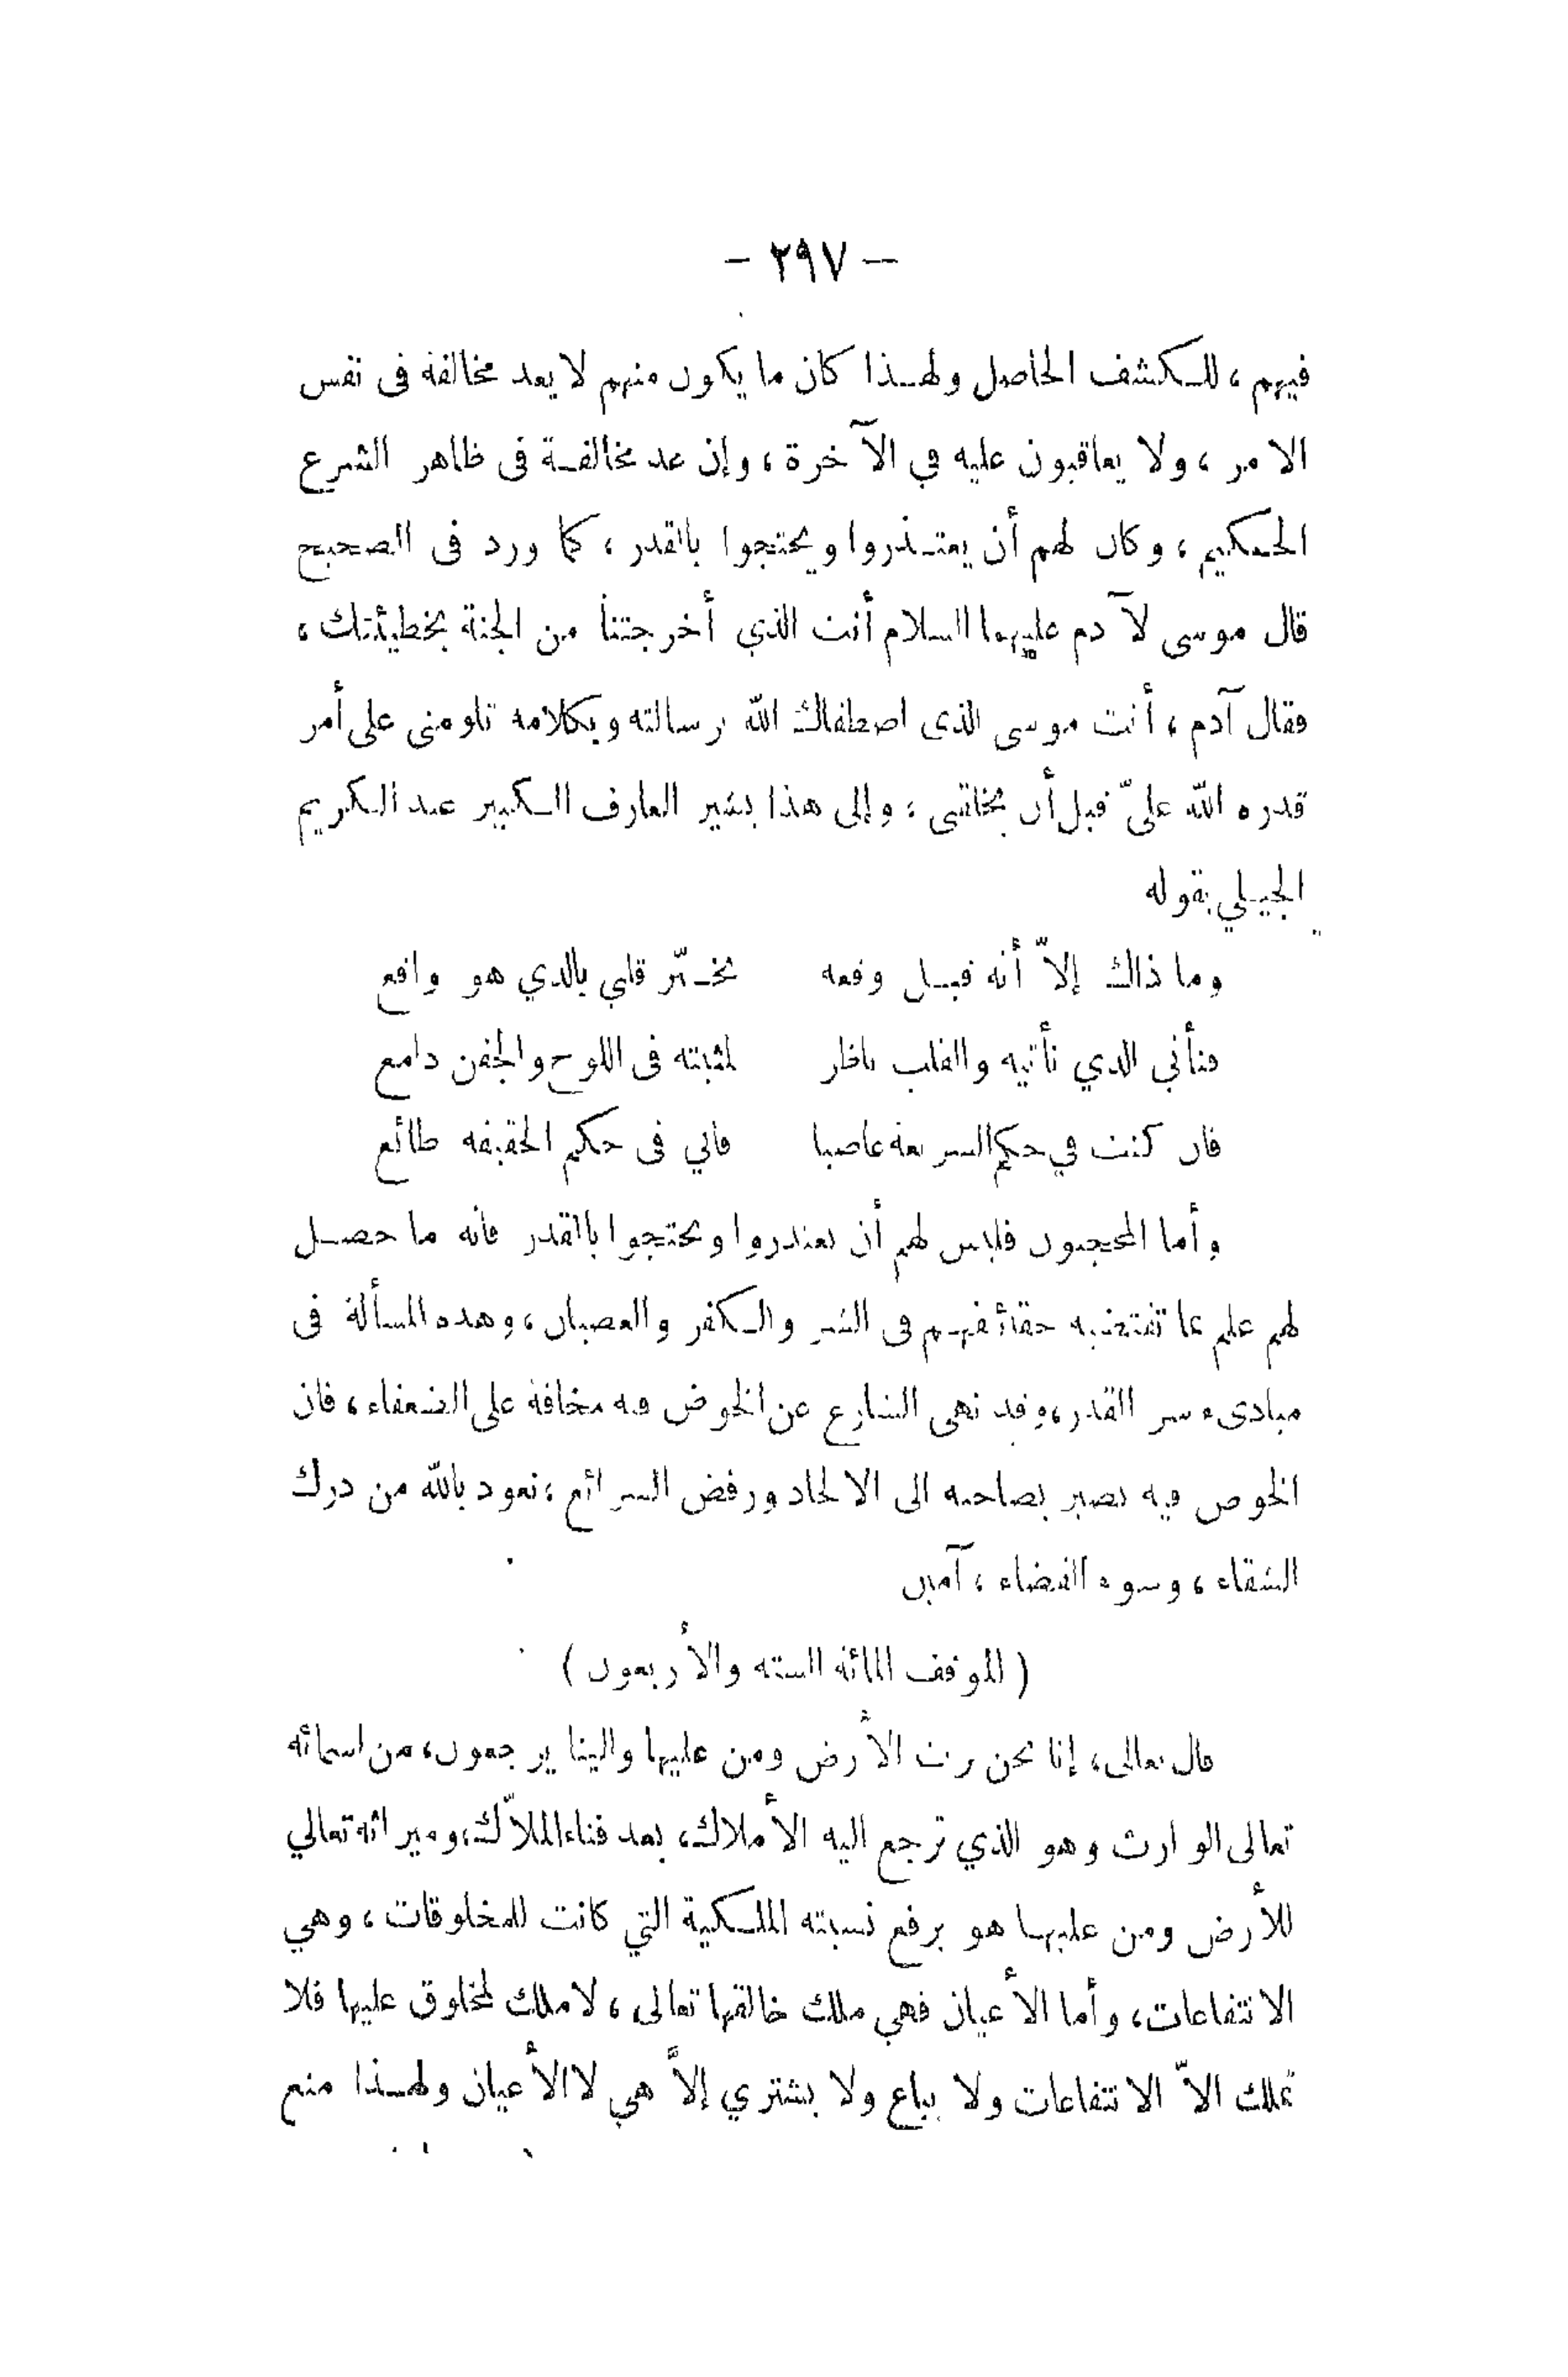 — ٢٩٧ —
فيهم ، للكشف الحاصل ولهذا كان ما يكون منهم لا يعد مخالفة فى نفس
الامر ، ولا يعاقبون عليه في الآخرة ، وإن عد مخالفة فى ظاهر الشرع
الحكيم ، وكان لهم أن يعتذروا ويحتجوا بالقدر ، كما ورد فى الصحيح
قال موسى لآدم عليهما السلام أنت الذي أخرجتنا من الجنة بخطيئتك ،
فقال آدم ، أنت موسى الذى اصطفاك الله برسالته وبكلامه تلومنى على أمر
قدره الله علىّ قبل أن يخلقنى ، وإلى هذا يشير العارف الكبير عبد الكريم
الجيلي بقوله
وما ذاك إلاّ أنه قبل وقعه يخبّر قلبي بالذي هو واقع
فنأتي الذي نأتيه والقلب ناظر لمثبته فى اللوح والجفن دامع
فان كنت في حكم الشريعة عاصيا فاني فى حكم الحقيقة طائع
وأما المحجبون فليس لهم أن يعتذروا ويحتجوا بالقدر فانه ما حصل
لهم علم بما تقتضيه حقائقهم فى الشر والكفر والعصيان ، وهذه المسألة فى
مبادىء سر القدر ، وقد نهى الشارع عن الخوض فيه مخافة على الضعفاء ، فان
الخوض فيه يصير بصاحبه الى الالحاد ورفض الشرائع ، نعوذ بالله من درك
الشقاء ، وسوء القضاء ، آمين
( الموقف المائة الستة والأربعون )
قال تعالى ، إنا نحن نرث الأرض ومن عليها والينا يرجعون ، من اسمائه
تعالى الوارث وهو الذي ترجع اليه الأملاك ، بعد فناء الملاّك ، وميراثه تعالي
للأرض ومن عليها هو برفع نسبته الملكية التي كانت للمخلوقات ، وهي
الانتفاعات ، وأما الأعيان فهي ملك خالقها تعالى ، لا ملك لمخلوق عليها فلا
تملك الاّ الانتفاعات ولا يباع ولا يشتري إلاّ هي لا الأعيان ولهذا منع